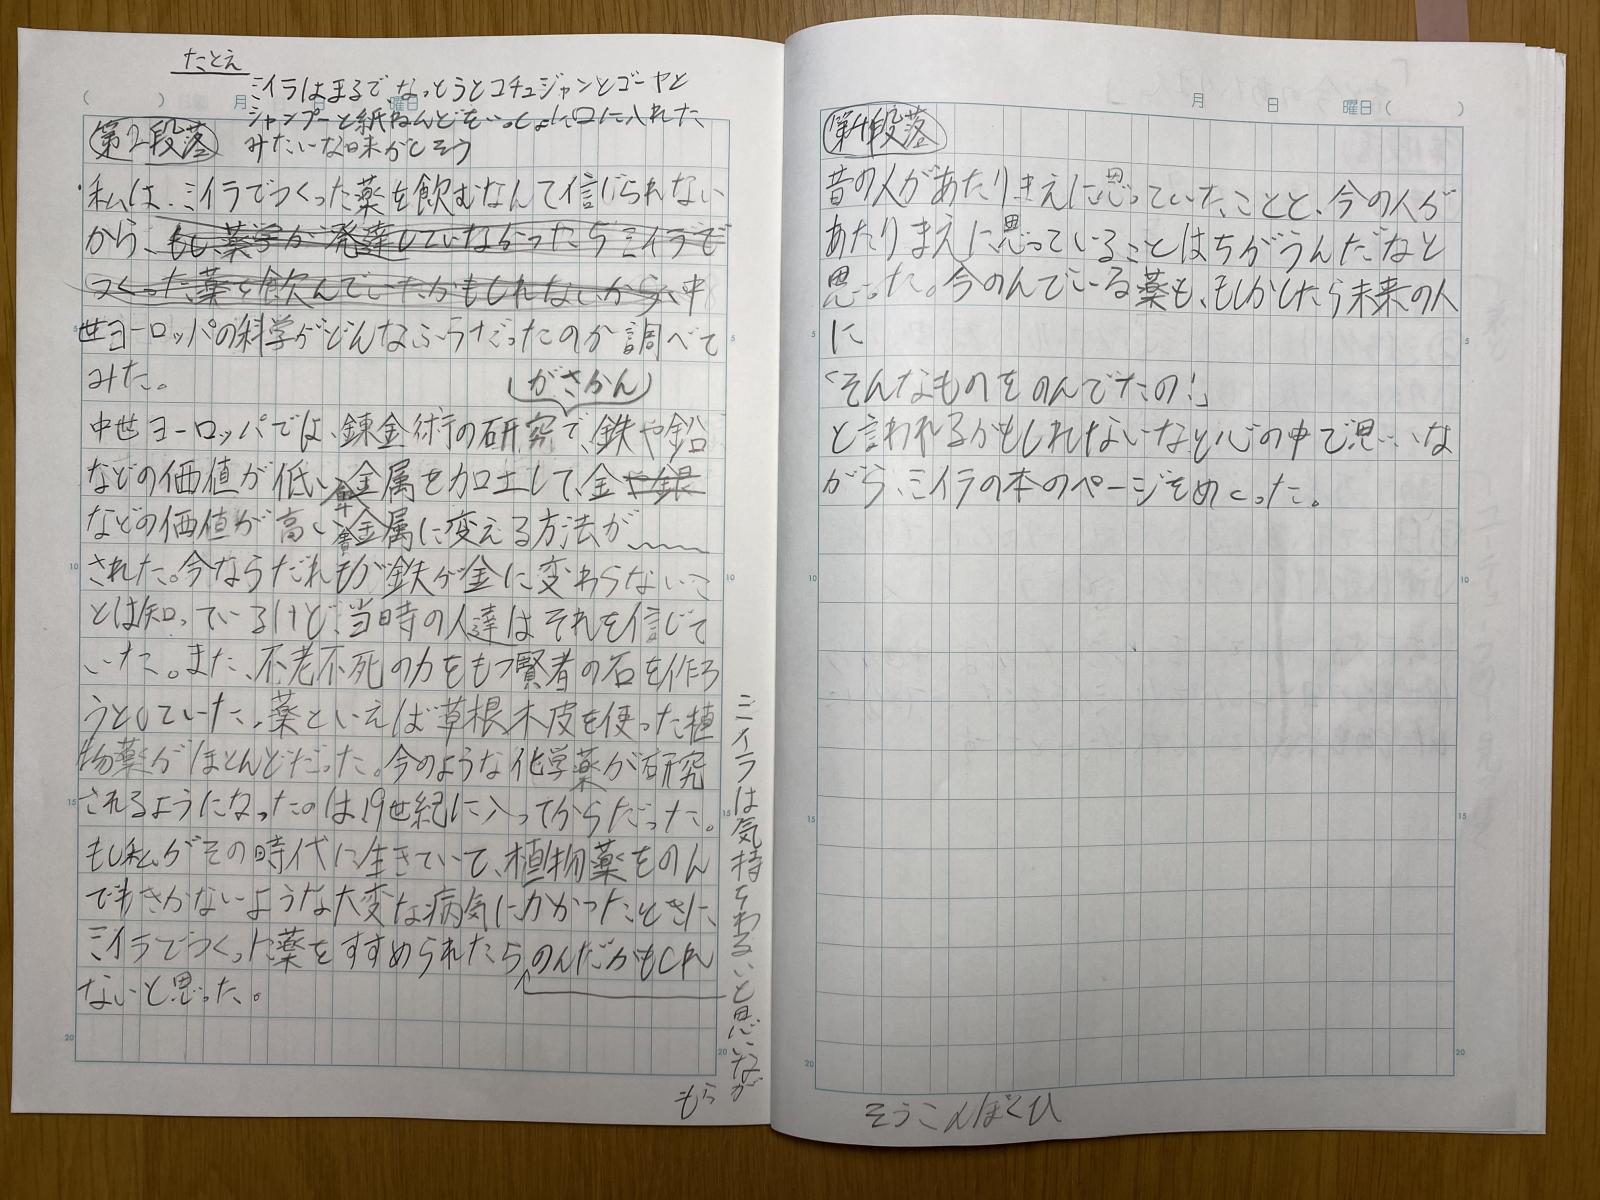 たとえ
ミイラはまるで、なっとうとコチュジャンとゴーヤと
シャンプーと紙ねんどをいっしょに口に入れた
みたいな味がしそう
( ) 月 日 曜日
第2段落
・私は、ミイラでつくった薬を飲むなんて信じられない
から、もし薬学が発達していなかったらミイラで
つくった薬を飲んでいたかもしれないから、中
世ヨーロッパの科学がどんなふうだったのか調べて
みた。
(がさかん)
中世ヨーロッパでは、錬金術の研究で、鉄や鉛
などの価値が低い金属を加工して、金や銀
などの価値が高い金属に変える方法が
された。今ならだれもが鉄が金に変わらないこ
とは知っているけど、当時の人達はそれを信じて
いた。また、不老不死の力をもつ賢者の石を作ろ
うとしていた。薬といえば草根木皮を使った植
物薬がほとんどだった。今のような化学薬が研究
されるようになったのは19世紀に入ってからだった。
もし私がその時代に生きていて、植物薬をのん
でもきかないような大変な病気にかかったときに、
ミイラでつくった薬をすすめられたら、のんだかもしれ
ないと思った。
ミイラは気持ちわるいと思いなが
らも
5
10
15
20
5
10
15
20
月 日 曜日 ( )
第4段落
昔の人があたりまえに思っていたことと、今の人が
あたりまえに思っていることはちがうんだなと
思った。今のんでいる薬も、もしかしたら未来の人
に
「そんなものをのんでたの!」
と言われるかもしれないなと心の中で思いな
がら、ミイラの本のページをめくった。
そうこんぼくひ
5
10
15
20
5
10
15
20